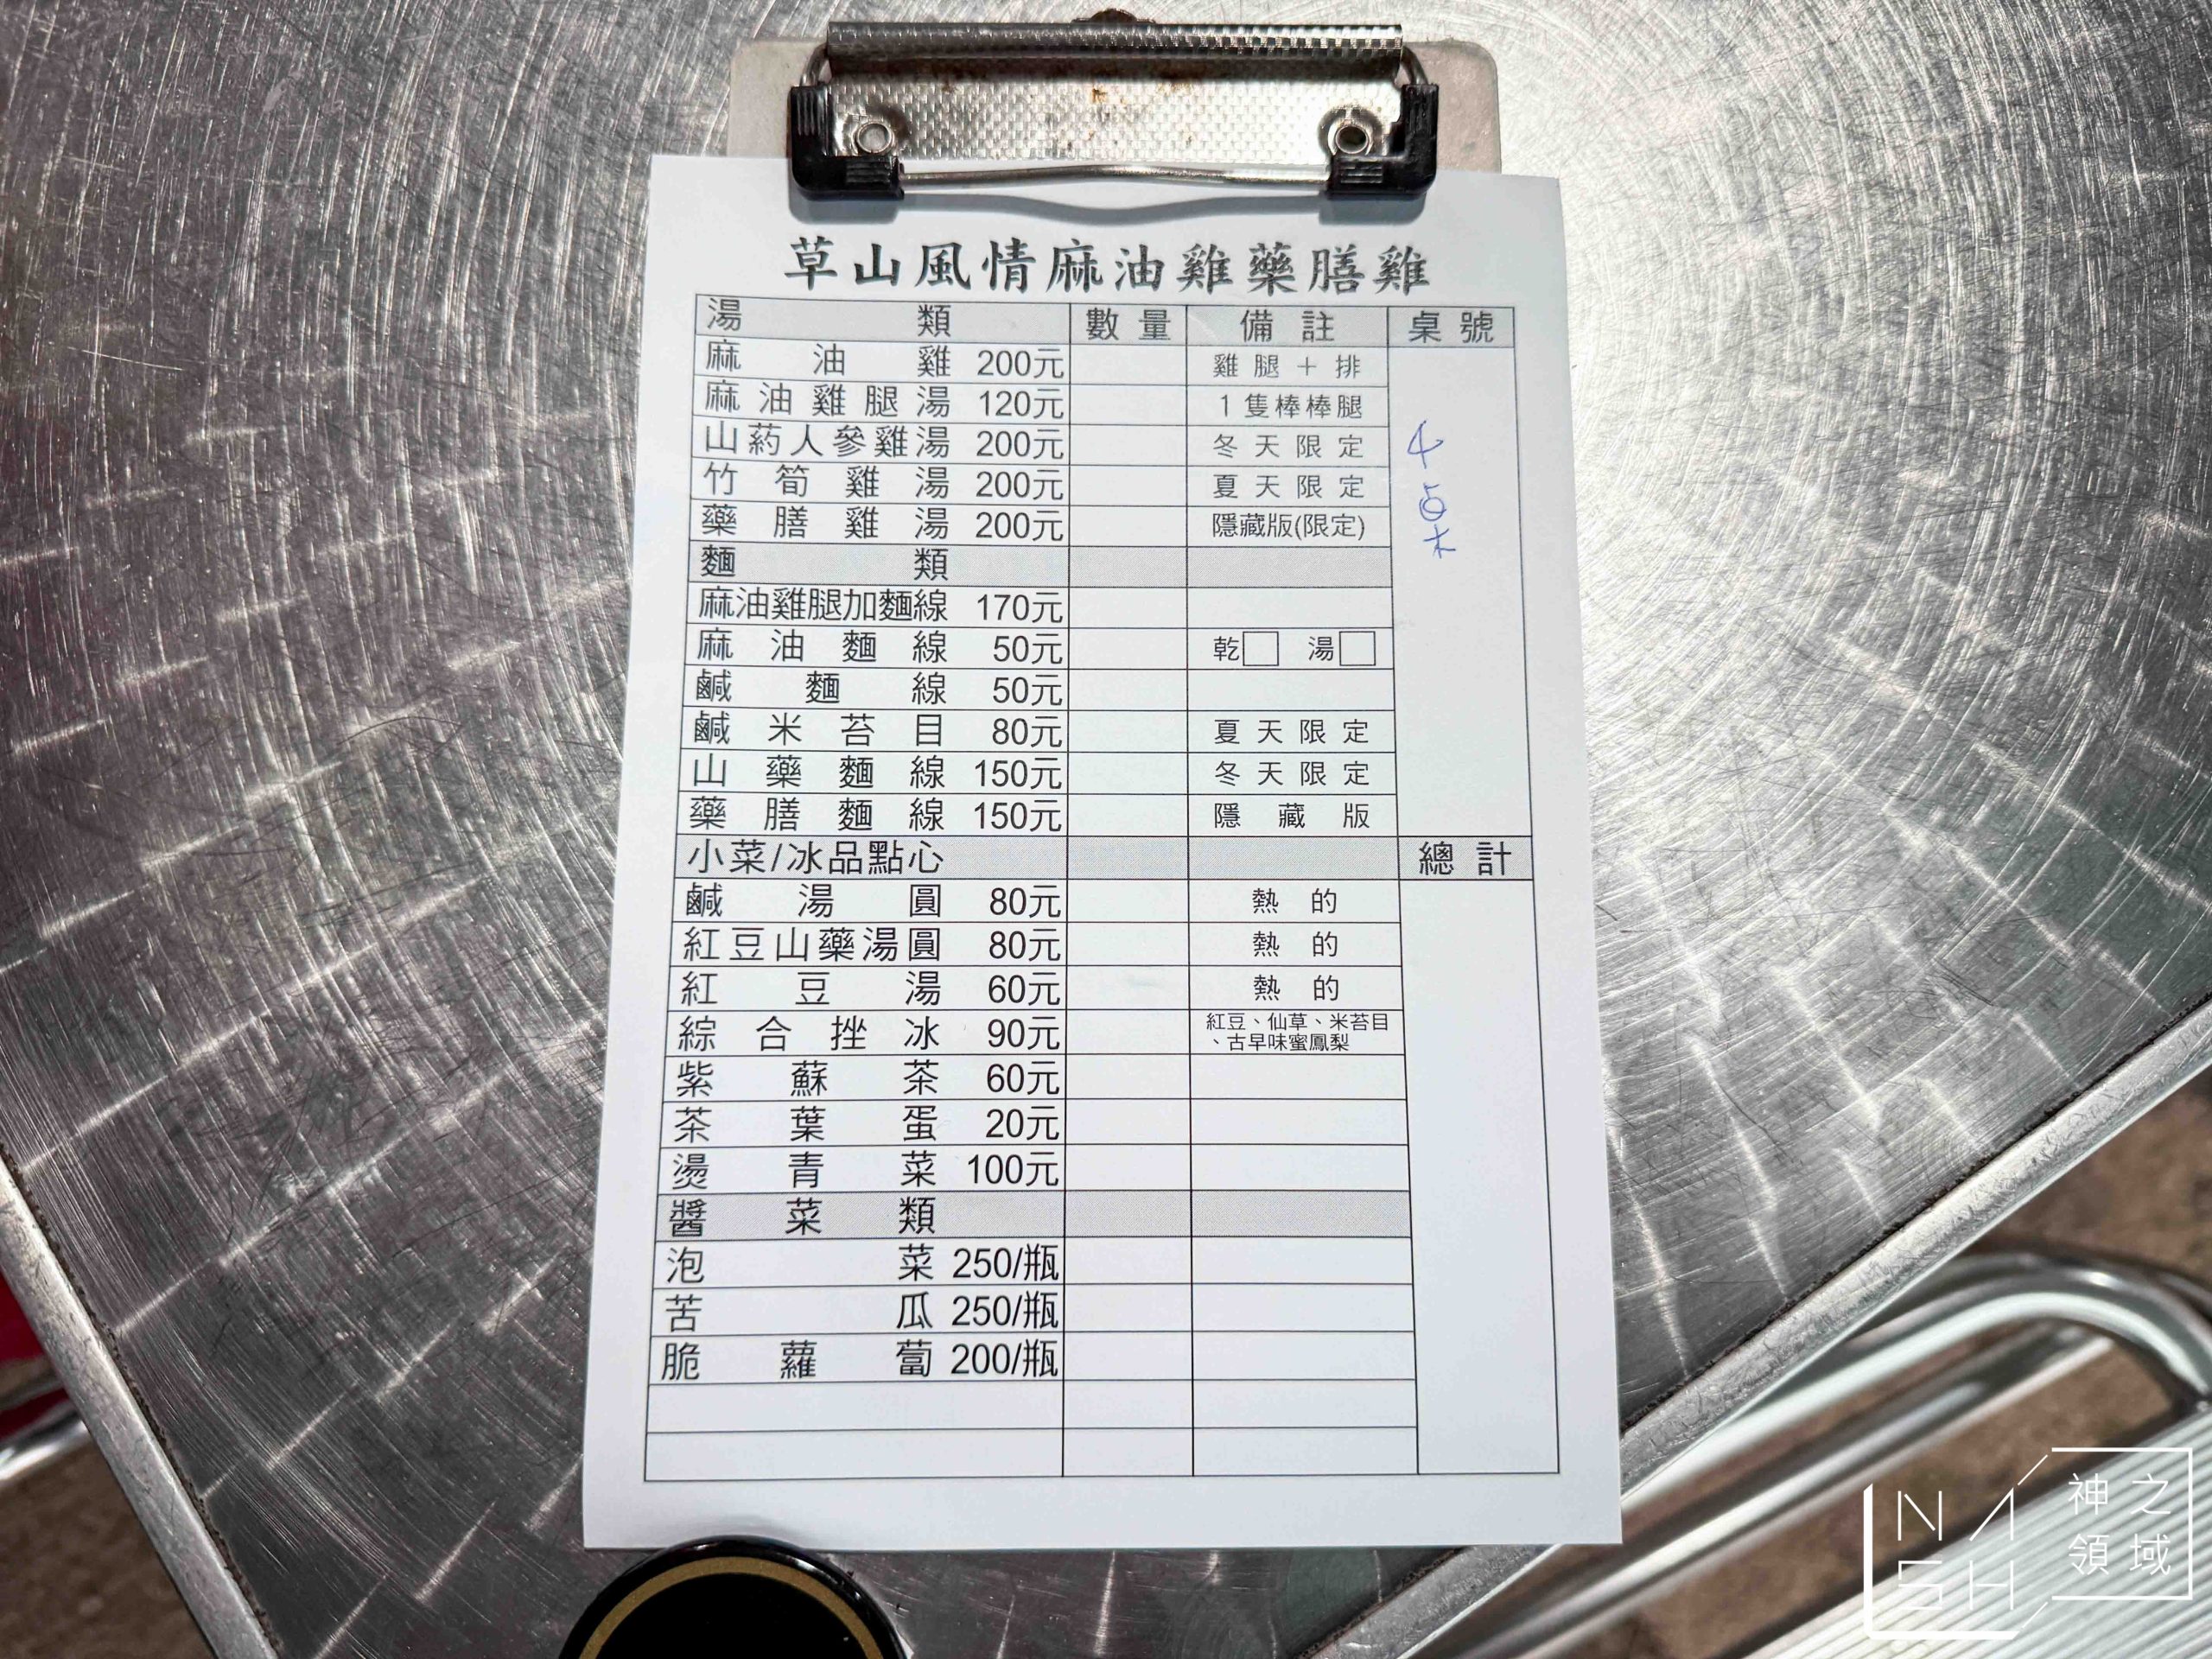 草山風情麻油雞藥膳雞
湯類 數量 備註 桌號
麻油雞 200元 雞腿+排
麻油雞腿湯 120元 1隻棒棒腿
山葯人參雞湯 200元 冬天限定
竹筍雞湯 200元 夏天限定
藥膳雞湯 200元 隱藏版(限定)
4桌
麵類
麻油雞腿加麵線 170元
麻油麵線 50元 乾□ 湯□
鹹麵線 50元
鹹米苔目 80元 夏天限定
山藥麵線 150元 冬天限定
藥膳麵線 150元 隱藏版
小菜/冰品點心 總計
鹹湯圓 80元 熱的
紅豆山藥湯圓 80元 熱的
紅豆湯 60元 熱的
綜合挫冰 90元 紅豆、仙草、米苔目
、古早味蜜鳳梨
紫蘇茶 60元
茶葉蛋 20元
燙青菜 100元
醬菜類
泡菜 250/瓶
苦瓜 250/瓶
脆蘿蔔 200/瓶
NASH
神之
領域